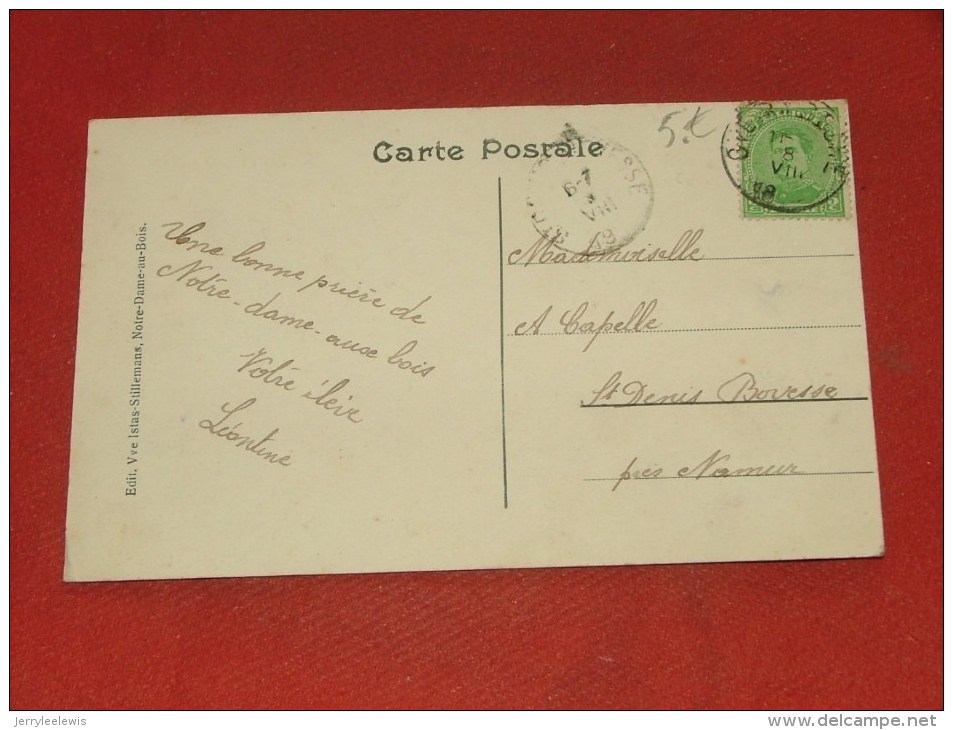 Carte Postale
5.€
6-7
VIII
19
8
VIII
Une bonne prière de
Notre-dame-aux bois
Votre élève
Léontine
Mademoiselle
A Capelle
St Denis Bovesse
près Namur
Edit. Vve Istas-Stillemans, Notre-Dame-au-Bois.
jerryleelewis
www.delcampe.net